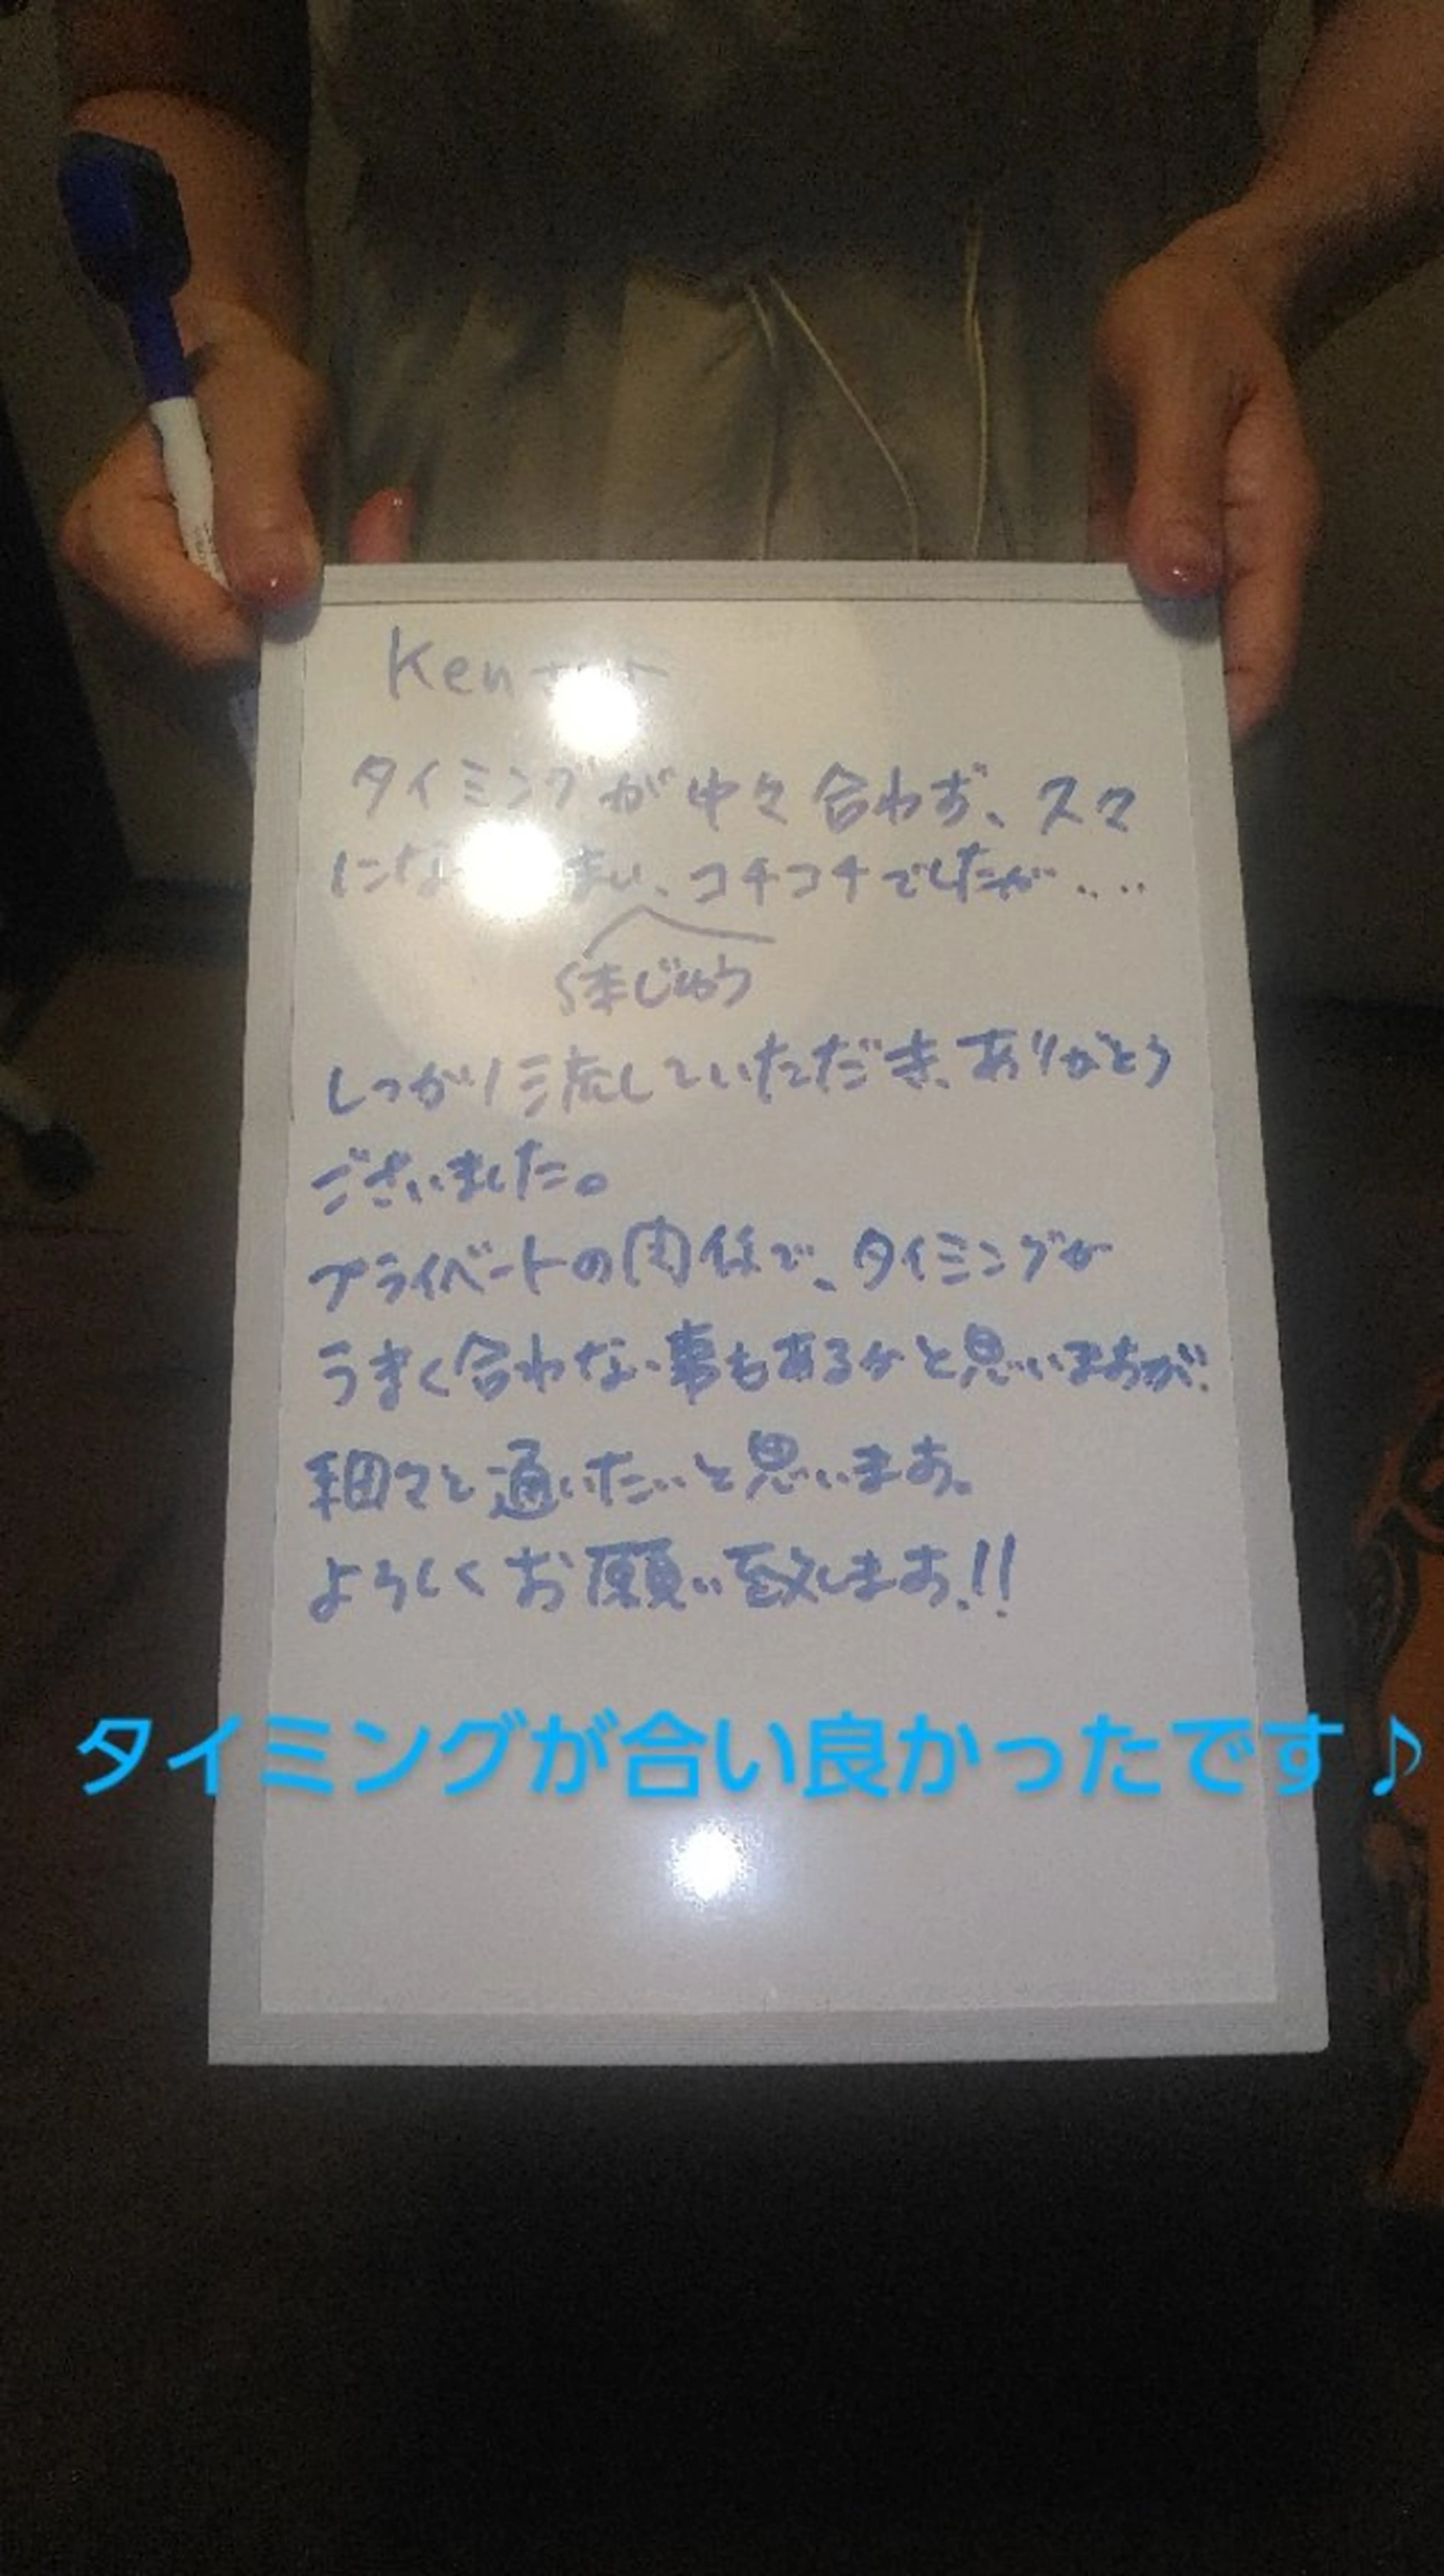 Ken
タイミングが中々合わず、久々
にな まい、コチコチでしたが‥‥
体じゅう
しっかり流していただき、ありがとう
ございました。
プライベートの関係で、タイミングが
うまく合わない事もあるかと思いますが、
細々と通いたいと思います。
よろしくお願い致します!!
タイミングが合い良かったです♪